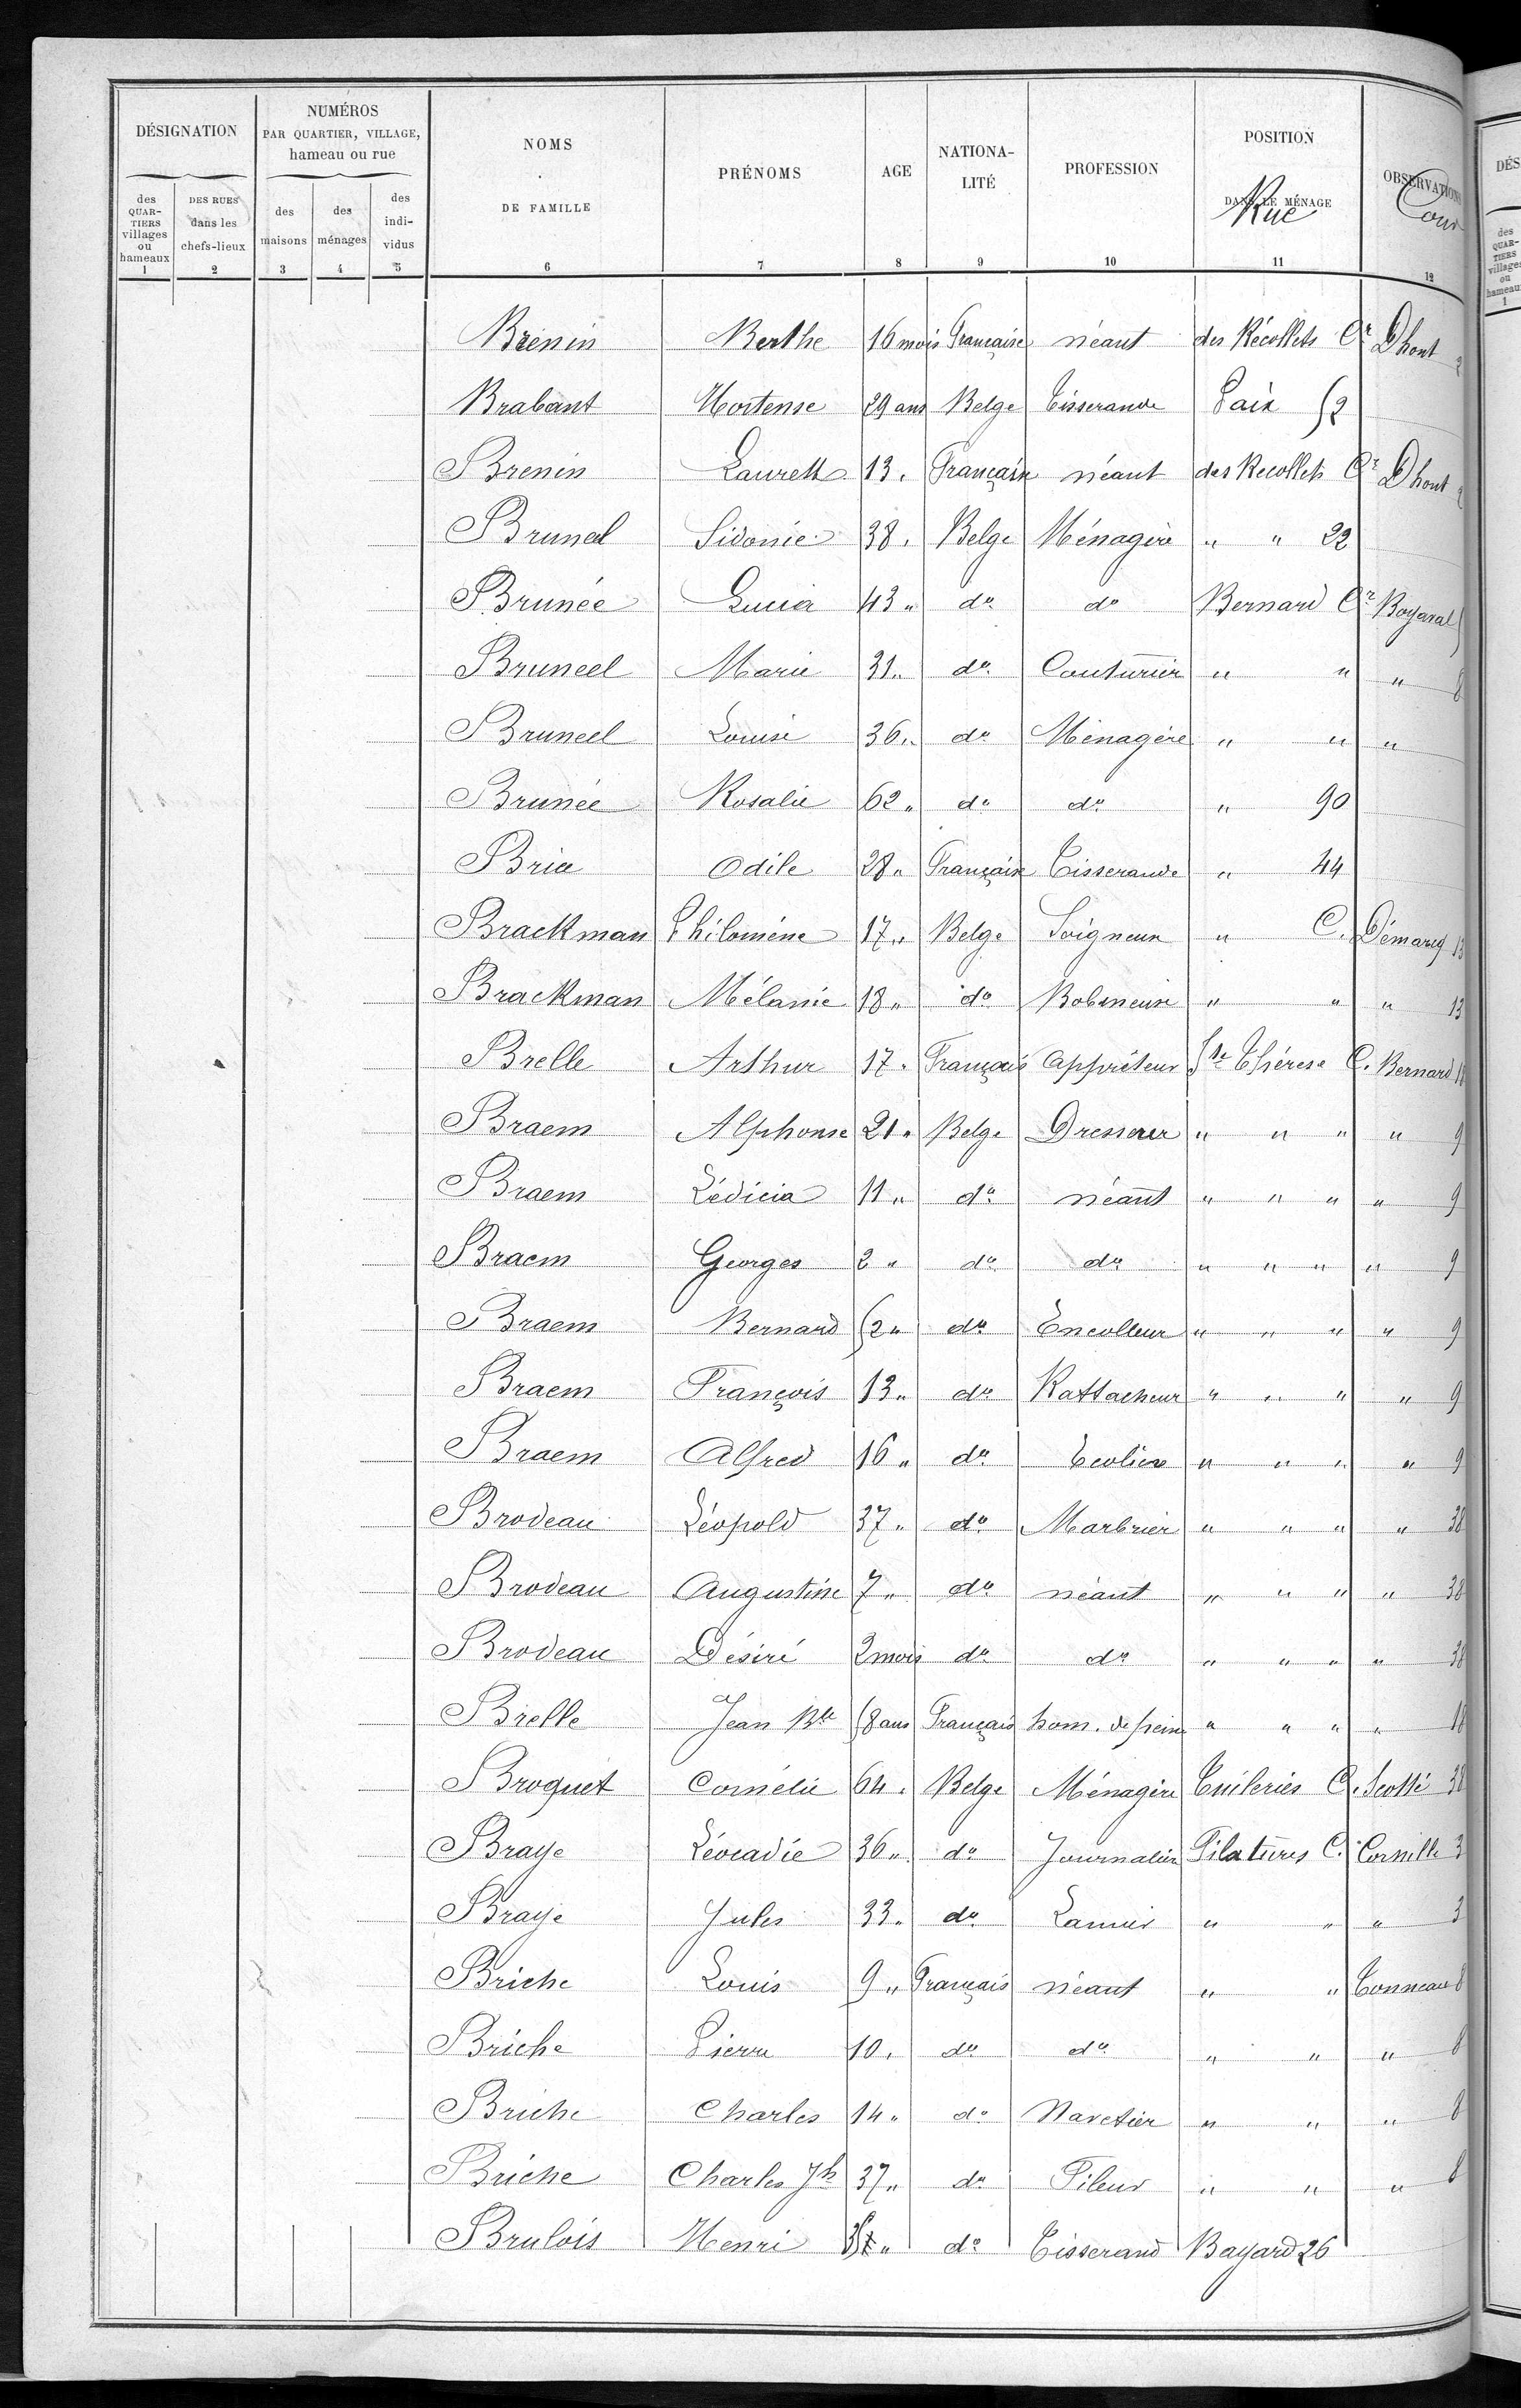 DÉSIGNATION
NUMÉROS
PAR QUARTIER, VILLAGE,
hameau ou rue
NOMS
DE FAMILLE
PRÉNOMS
AGE
NATIONA-
LITÉ
PROFESSION
POSITION
DANS LE MÉNAGE
Rue
OBSERVATIONS
Cour
des
QUAR-
TIERS
villages
ou
hameaux
DES RUES
dans les
chefs-lieux
des
maisons
des
ménages
des
indi-
vidus
1 2 3 4 5 6 7 8 9 10 11 12
Brenin Berthe 16 mois Française néant des Récollets Cr Dhont
Brabant Hortense 29 ans Belge Tisserande Paix 52
Brenin Laurett 13 " Française néant des Recollets Cr Dhont
Bruneel Sidonie 38 " Belge Ménagère " " 22
Brunée Lucia 43 " do do Bernard Cr
Bruneel Marie 31 " do Couturrière " " " 8
Bruneel Louise 36 " do Ménagère " " "
Brunée Rosalie 62 " do do " 90
Bria Odile 28 " Française Tisserande " 44
Brackman Philomène 17 " Belge Soigneuse " C. 13
Brackman Mélanie 18 " do Bobineuse " " " 13
Brelle Arthur 17 " Français Apprêteur Ste Thérèse C. Bernard 18
Braem Alphonse 21 " Belge Dresseur " " " " 9
Braem Lédicia 11 " do néant " " " " 9
Braem Georges 2 " do do " " " " 9
Braem Bernard 52 " do Encolleur " " " " 9
Braem François 13 " do Rattacheur " " " " 9
Braem Alfred 16 " do Ecolier " " " " 9
Brodeau Léopold 37 " do Marbrier " " " " 38
Brodeau Augustine 7 " do néant " " " " 38
Brodeau Désiré 2 mois do do " " " " 38
Brelle Jean Bte 58 ans Français hom. de peine " " " " 18
Broquet Cornélie 64 " Belge Ménagère Tuileries C. Scotté 38
Braye Léocadie 36 " do Journalière Filatures C. Cornille 3
Braye Jules 33 " do Lamier " " " 3
Briche Louis 9 " Français néant " " Tonneau 8
Briche Pierre 10 " do do " " " 8
Briche Charles 14 " do Navetier " " " 8
Briche Charles Jh 37 " do Fileur " " " 8
Brulois Henri do Tisserand Bayard 26
DÉS
des
QUAR-
TIERS
villages
ou
hameau
1